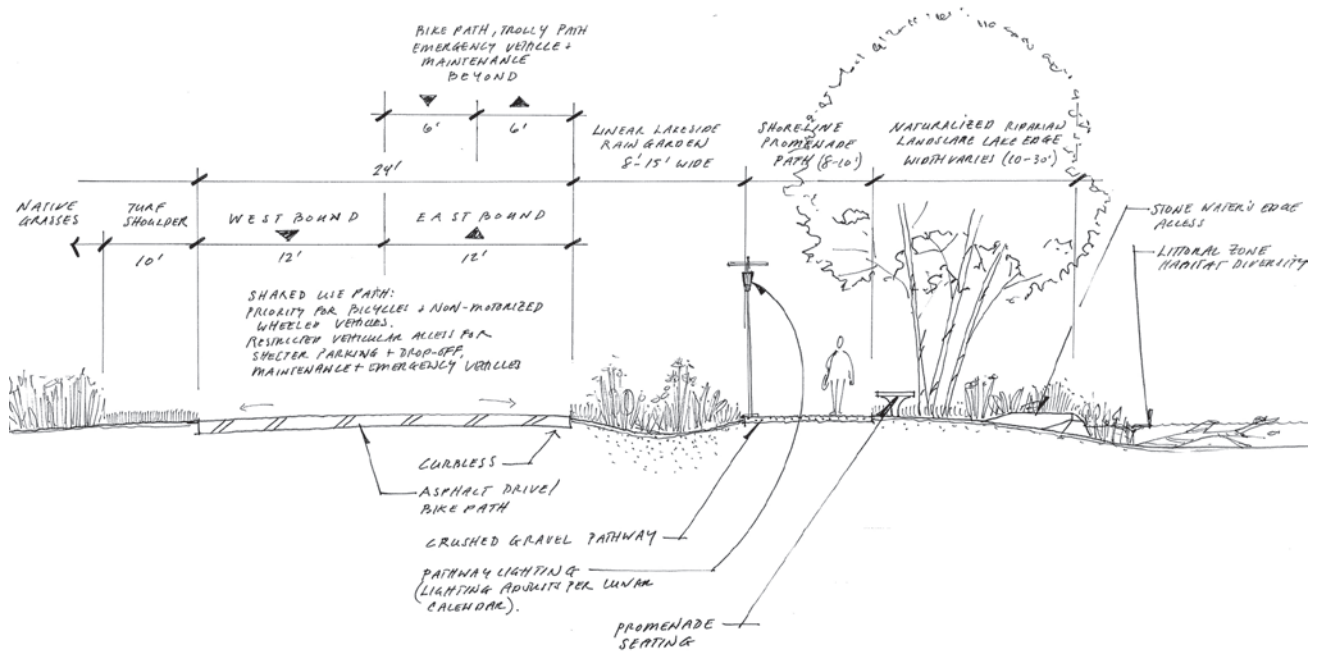 BIKE PATH, TROLLY PATH
EMERGENCY VEHICLE +
MAINTENANCE
BEYOND
6'
6'
24'
LINEAR LAKESIDE
RAIN GARDEN
8'-15' WIDE
SHORELINE
PROMENADE
PATH (8-10')
NATURALIZED RIPARIAN
LANDSCAPE LAKE EDGE
WIDTH VARIES (10-30')
NATIVE
GRASSES
TURF
SHOULDER
10'
WEST BOUND
12'
EAST BOUND
12'
STONE WATER'S EDGE
ACCESS
LITTORAL ZONE
HABITAT DIVERSITY
SHARED USE PATH:
PRIORITY FOR BICYCLES + NON-MOTORIZED
WHEELED VEHICLES.
RESTRICTED VEHICULAR ACCESS FOR
SHELTER PARKING + DROP-OFF,
MAINTENANCE + EMERGENCY VEHICLES
CURBLESS
ASPHALT DRIVE/
BIKE PATH
CRUSHED GRAVEL PATHWAY
PATHWAY LIGHTING
(LIGHTING ADJUSTS PER LUNAR
CALENDAR).
PROMENADE
SEATING